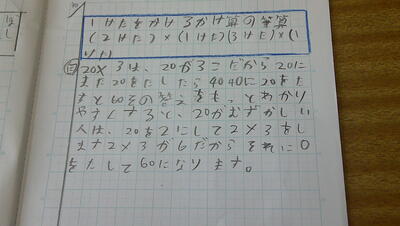 1けたをかける かけ算の筆算
(2けた)×(1けた)(3けた)×(1
けた)
20×3は、20が3こだから20に
また20をたしたら40 40に20をた
すと60その答えをもっとわかり
やすくすると、20がむずかしい
人は、20を2にして2×3をし
ます2×3が6だからそれに0
をたして60になります。